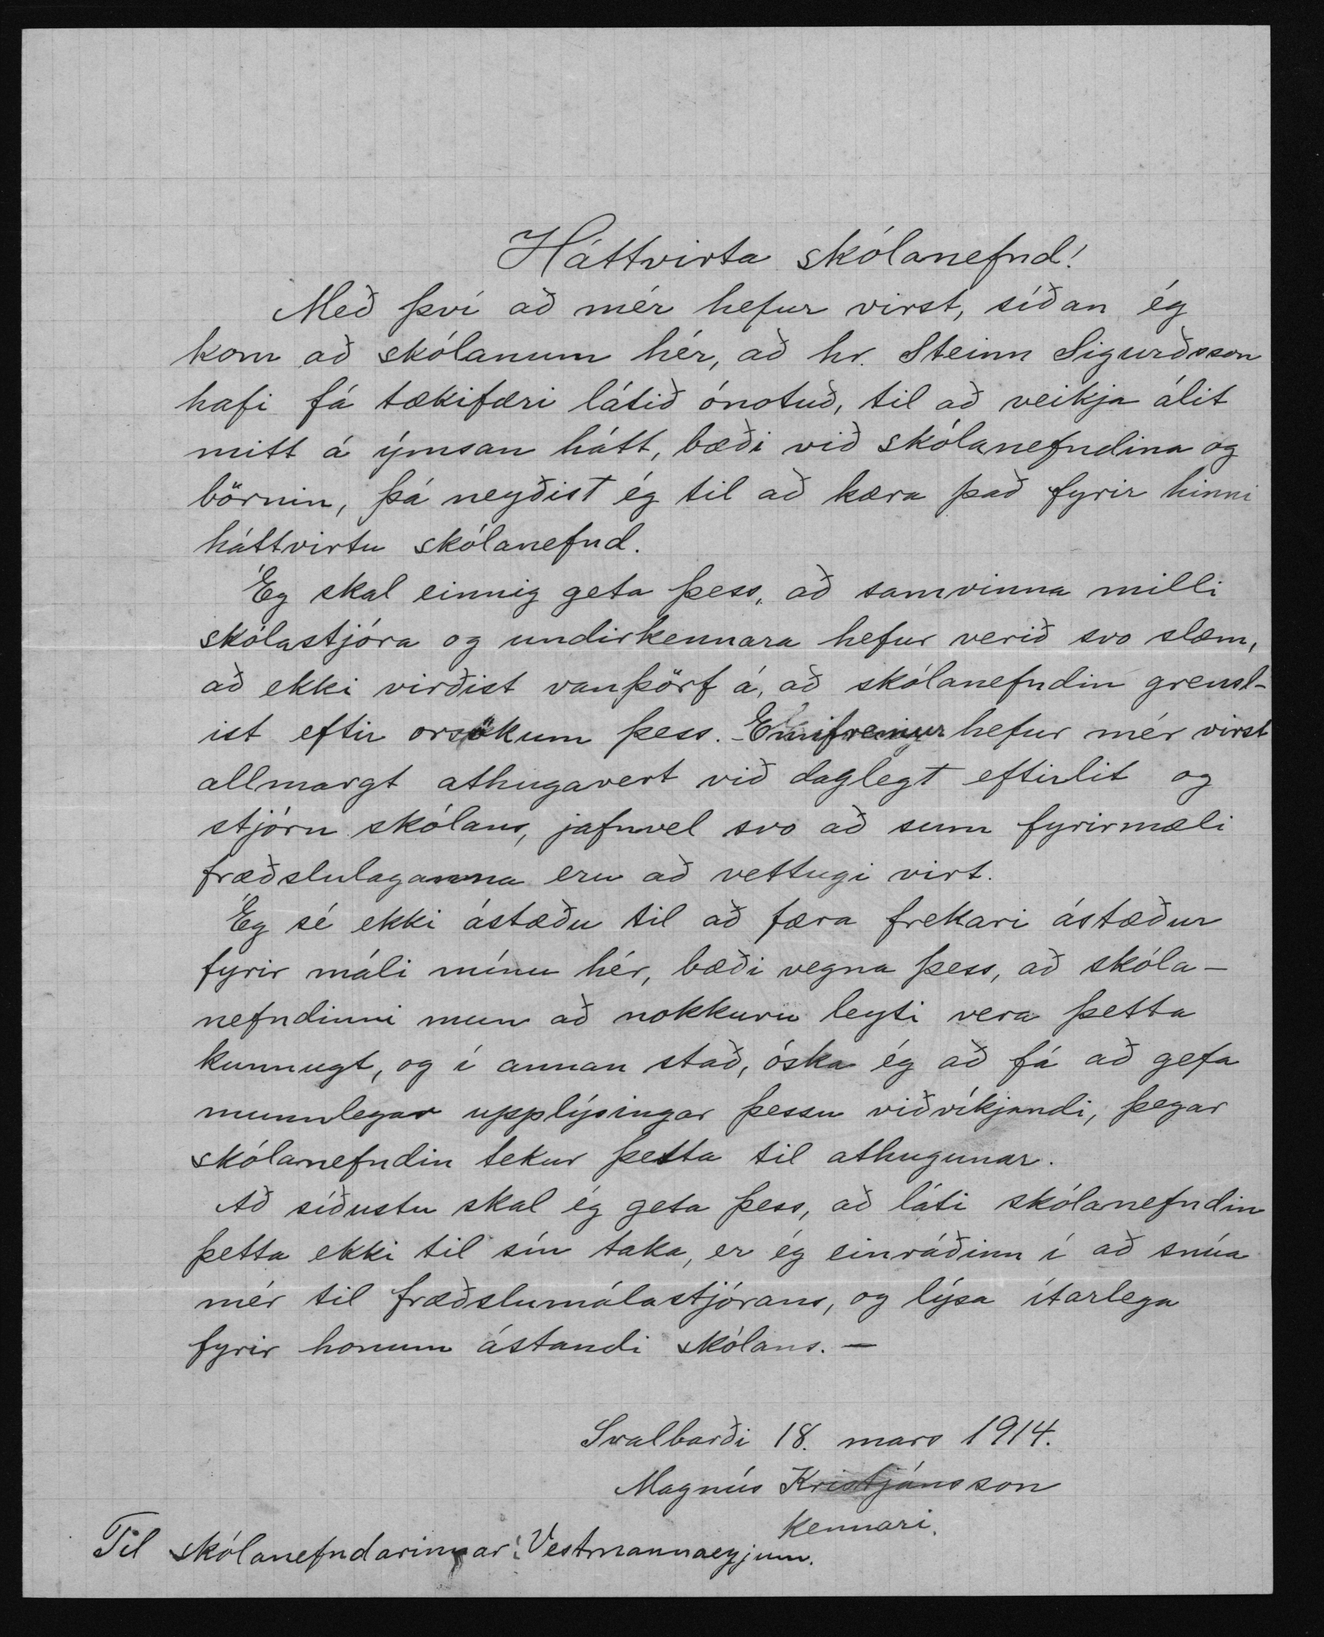 Háttvirta skólanefnd!
Með því að mér hefur virst, síðan ég
kom að skólanum hér, að hr. Steinn Sigurðsson
hafi fá tækifæri látið ónotuð, til að veikja álit
mitt á ýmsan hátt, bæði við skólanefndina og
börnin, þá neyðist ég til að kæra það fyrir hinni
háttvirtu skólanefnd.
Eg skal einnig geta þess, að samvinna milli
skólastjóra og undirkennara hefur verið svo slæm,
að ekki virðist vanþörf á, að skólanefndin grensl-
ist eftir orsökum þess. Ennfremur hefur mér virst
allmargt athugavert við daglegt eftirlit og
stjórn skólans, jafnvel svo að sum fyrirmæli
fræðslulaganna eru að vettugi virt.
Eg sé ekki ástæðu til að færa frekari ástæður
fyrir máli mínu hér, bæði vegna þess, að skóla-
nefndinni mun að nokkuru leyti vera þetta
kunnugt, og í annan stað, óska ég að fá að gefa
munnlegar upplýsingar þessu viðvíkjandi, þegar
skólanefndin tekur þetta til athugunar.
Að síðustu skal ég geta þess, að láti skólanefndin
þetta ekki til sín taka, er ég einráðinn í að snúa
mér til fræðslumálastjórans, og lýsa ítarlega
fyrir honum ástandi skólans. —
Svalbarði 18. mars 1914.
Magnús Kristjánsson
kennari.
Til skólanefndarinnar í Vestmannaeyjum.